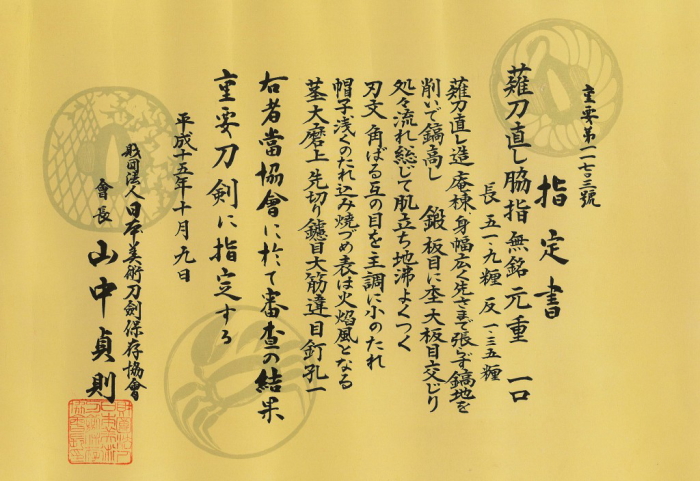 重要第一一七〇三號
指定書
薙刀直し脇指 無銘 元重 一口
長 五一・九糎 反 一・三五糎
薙刀直し造、庵棟、身幅広く先さまで張らず、鎬地を
削いで鎬高し 鍛 板目に杢・大板目交じり
処々流れ総じて肌立ち地沸よくつく
刃文 角ばる互の目を主調に小のたれ
帽子 浅くのたれ込み焼づめ表は火焔風となる
茎 大磨上 先切り 鑢目大筋違 目釘孔一
右者當協會に於て審査の結果
重要刀剣に指定する
平成十五年十月九日
財団法人日本美術刀劍保存協會
會長 山中貞則